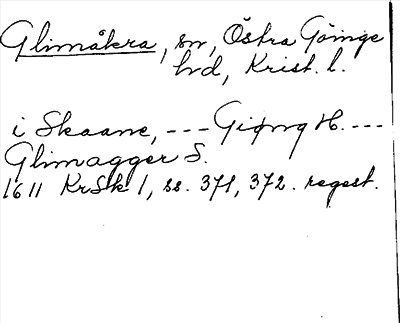 Glimåkra, sn, Östra Göinge
hd, Krist. l.
i Skaane, --- Giøng H. ---
Glimagger S.
1611 KrSk 1, ss. 371, 372. regest.